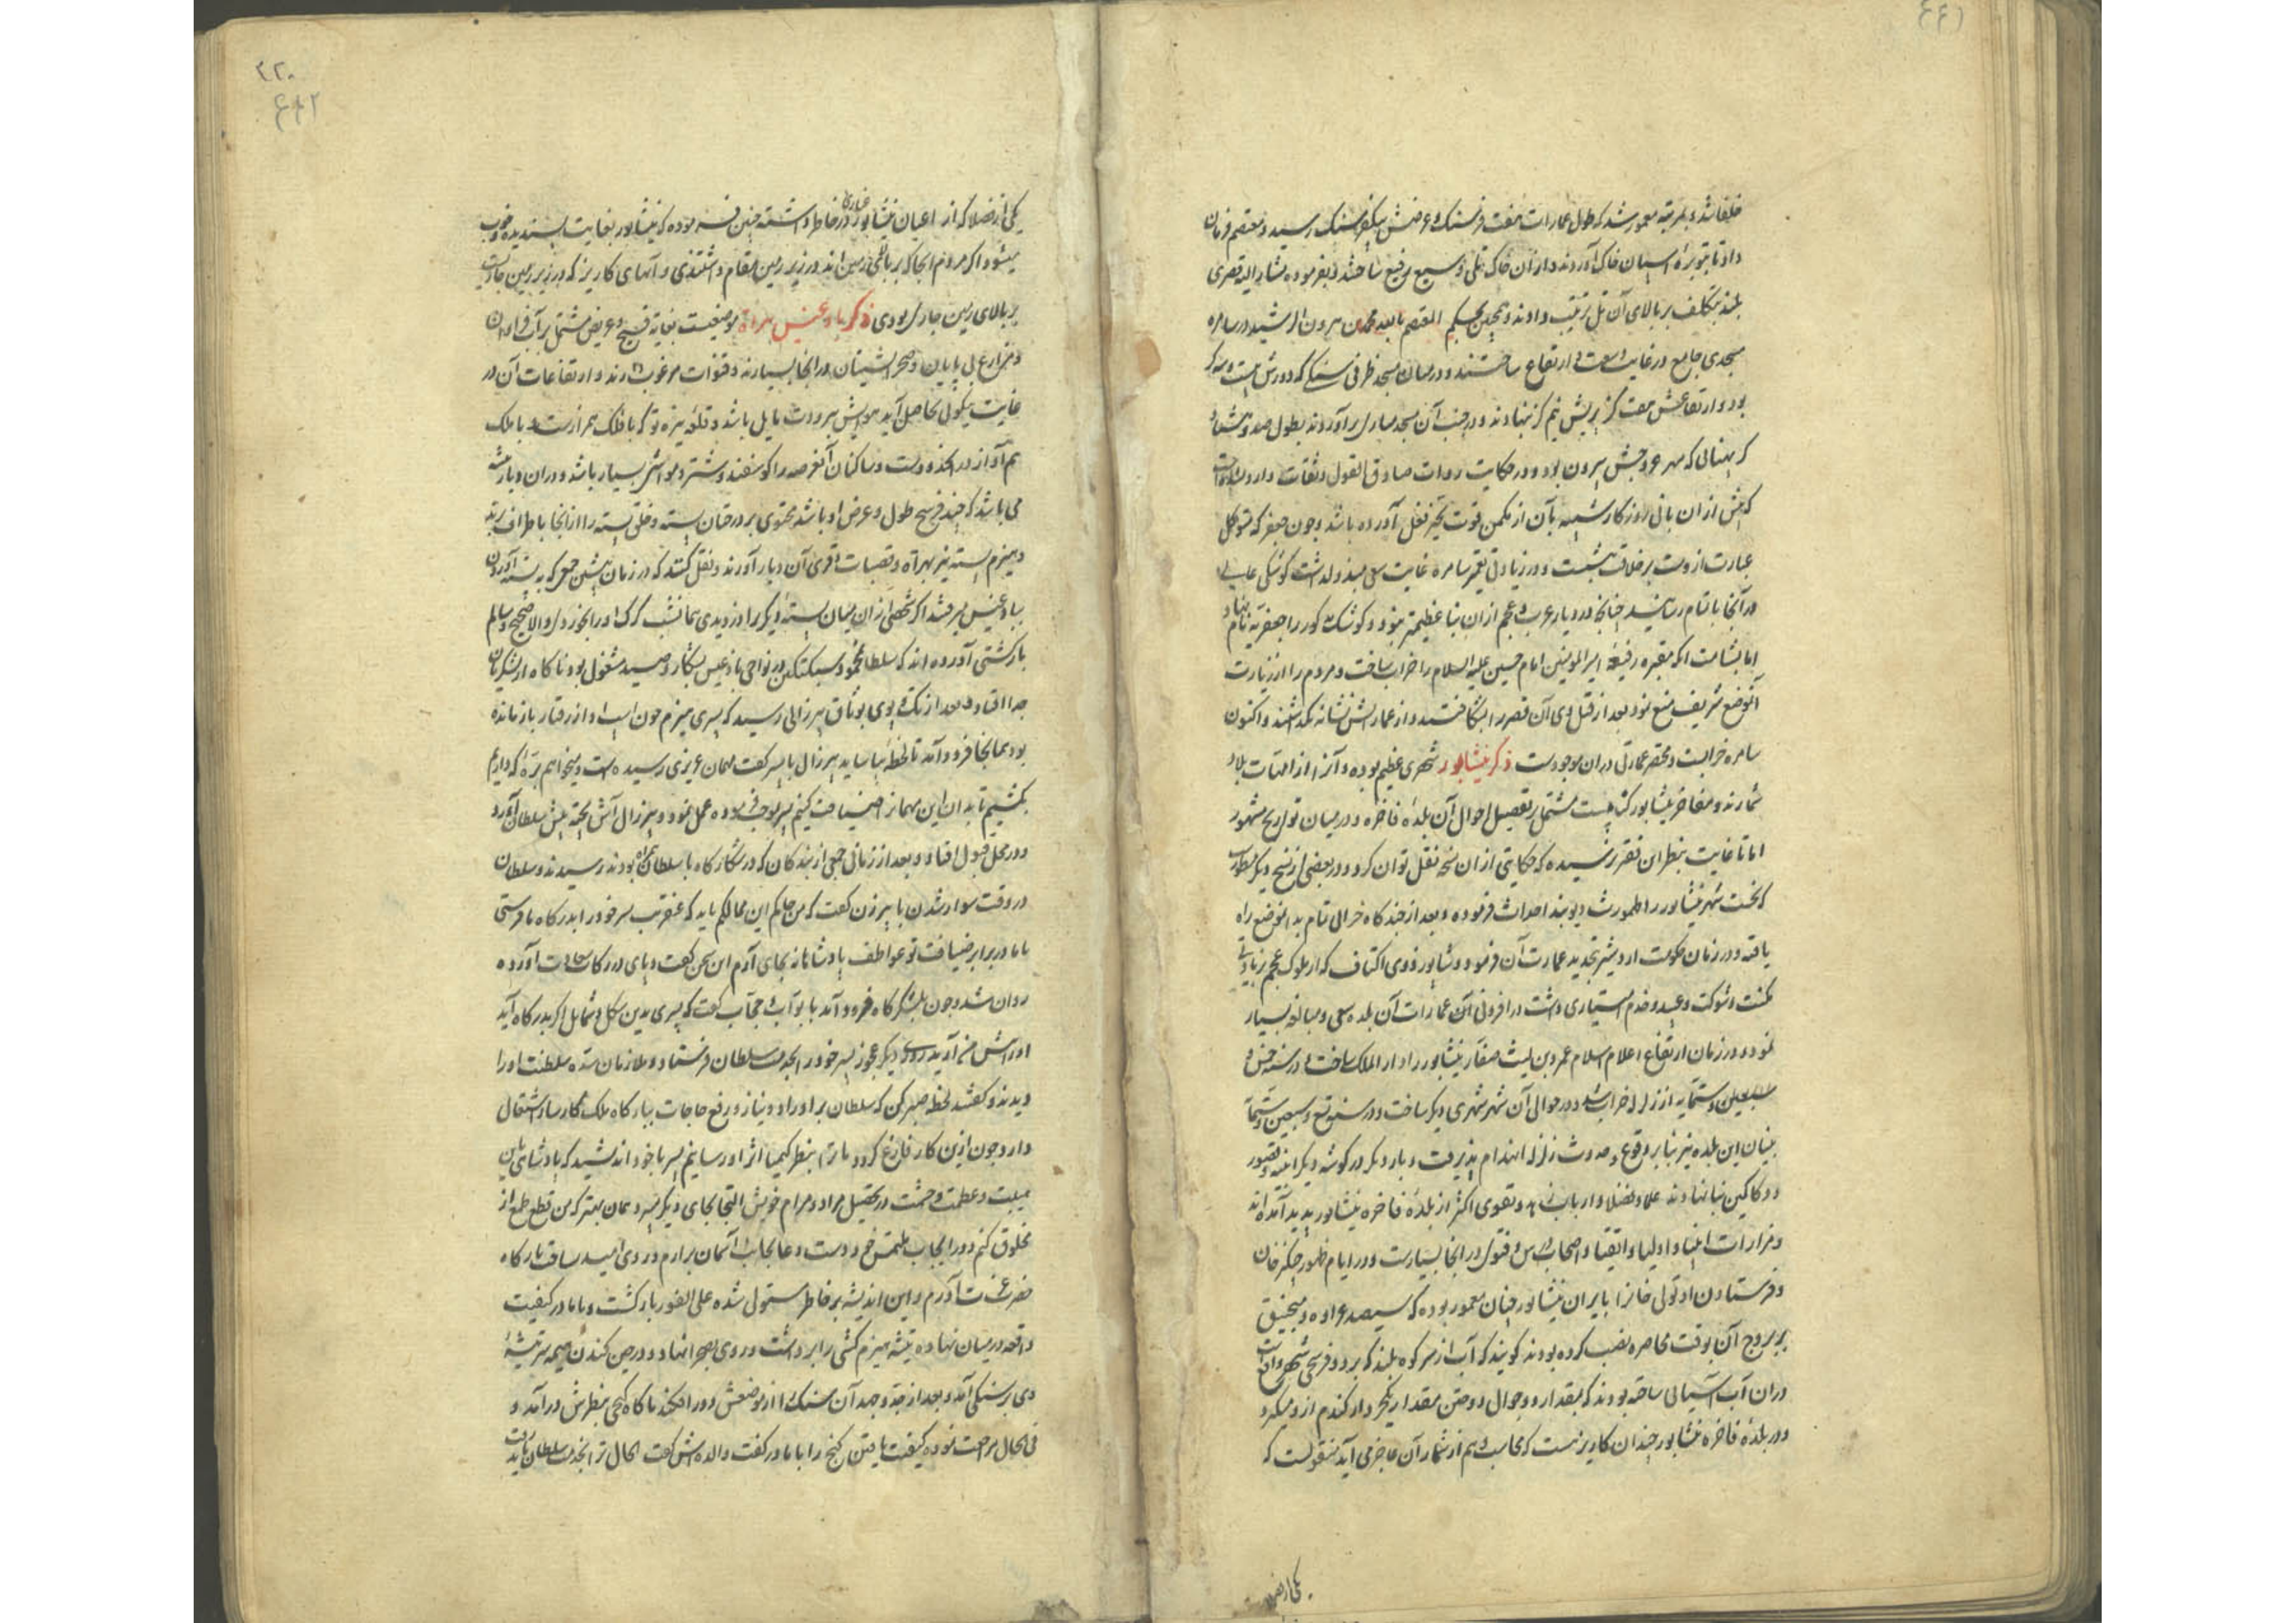 خلفا شد و بمرتبه معمور شد که طول عمارات هفت فرسنگ و عرضش یکفرسنگ رسید و معتصم فرمان
داد تا بتوبره اسبان خاک آوردند و از آن خاک تلی وسیع رفیع ساختند و بفرموده مشار الیه قصری
بلند بتکلف بر بالای آن تل ترتیب دادند و همچنین بحکم المعتصم بالله محمد بن هرون الرشید در سامره
مسجدی جامع در غایت وسعت و ارتفاع ساختند و در میان مسجد ظرفی سنگی که دورش بیست و سه گز
بود و ارتفاعش هفت گز بیش نیم گز نهادند و در جنب آن مسجد مناری برآوردند بطول صد و هفتاد
گز بهنائی که ممر عروجش بیرون بود و در حکایت روات صادق القول و ثقات وارد است
که پیش از ان بانی روزگار شبیه بآن از مکمن قوت بحیز فعل آورده باشد و چون جعفر که متوکل
عبارت از وست بر خلافت بنشست و در زیادتی تعمیر سامره غایت سعی مبذول داشت کوشکی عالی
در آنجا باتمام رسانید چنانچه در دیار عرب و عجم از ان بنا عظیمتر نبود و کوشک مذکور را جعفریه نام نهاد
اما بشامت انکه مقبره رفیعه امیر المومنین امام حسین علیه السلام را خراب ساخت و مردم را از زیارت
آنموضع شریف منع نمود بعد از قتل وی آن قصر را بشکافتند و از عمارتش نشانه نگذاشتند و اکنون
سامره خرابست و مختصر عمارتی در ان موجودست ذکر نیشابور شهری عظیم بوده و آنرا از امهات بلاد
شمارند و مفاخر نیشابور کتابیست مشتمل بر تفصیل احوال آن بلده فاخره و در میان تواریخ مشهور
اما تا غایت بنظر این فقیر نرسیده که حکایتی از ان نسخه نقل توان کرد و در بعضی از نسخ دیگر مسطورست
که نخست شهر نیشابور را طهمورث دیوبند احداث فرموده و بعد از چند گاه خرابی تمام بدانموضع راه
یافته و در زمان حکومت اردشیر تجدید عمارت آن فرمود و شاپور ذوی الاکتاف که از ملوک عجم بزیادتی
مکنت و شوکت و عبید و خدم امتیازی داشت در افزونی آن عمارات آن بلده سعی و مبالغه بسیار
نمود و در زمان ارتفاع اعلام اسلام عمرو بن لیث صفار نیشابور را دار الملک ساخت و در سنه خمس و
ستمایه از زلزله خراب شد و در حوالی آن شهر شهری دیگر ساخت و در سنه تسع و سبعین و ستمائة
بنیان این بلده نیز بنا بر وقوع و حدوث زلزله انهدام پذیرفت و بار دیگر در گوشه دیگر ابنیه و قصور
و دکاکین بنا نهادند علما و فضلا و ارباب زهد و تقوی اکثر از بلده فاخره نیشابور پدید آمده‌اند
و مزارات انبیا و اولیا و اتقیا و اصحاب درس و فتوی در انجا بسیارست و در ایام ظهور چنگیز خان
و فرستادن او تولی خانرا بایران نیشابور چنان معمور بوده که سیصد عراده و منجنیق
بر بروج آن بوقت محاصره نصب کرده بودند گویند که آب از سر کوه بلند که بر دو فرسخی شهر واقع است
در ان آب آسیائی ساخته بودند که بمقدار دو جوال دوختن مقدار یکخروار گندم آرد میکرد
و در بلده فاخره نیشابور چندان کاریزست که محاسب وهم از شمار آن عاجز می آید منقولست که
۴۲۰
یکی از فضلا که از اعیان نیشابور غباری در خاطر داشته چنین فرموده که نیشابور بغایت پسندیده و خوب
میشود اگر مردم انجا که بر بالای زمین اند در زیر زمین مقام داشتندی و آبهای کاریز که در زیر زمین جاریست
بر بالای زمین جاری بودی ذکر بادغیس هراة موضعیست بغایة فسیح و عریض مشتمل بر آب فراوان
و مزارع بی پایان و صحرا نشینان در انجا بسیارند و قنوات مرغوب دارند و ارتفاعات آن در
غایت نیکوئی بحاصل آید هوایش ببرودت مایل باشد و قلعه نیزه تو که با فلک همراز است و با ملک
هم آواز در انحدودست و ساکنان آنعرصه را گوسفند و شتر و مواشی بسیار باشد و در ان دیار بیشه
می باشد که چند فرسخ طول و عرض او باشد محتوی بر درختان پسته و خلق پسته را از انجا باطراف برند
و هیزم پسته نیز بهراة و قصبات و قری آن دیار آورند و نقل کنند که در زمان پیشین جمعی که به پسته آوردن
ببادغیس میرفتند اگر شخصی از ان میان پسته دیگری را دزدیدی همانشب گرگ او را بخوردی و الا صحیح و سالم
بازگشتی آورده اند که سلطان محمود سبکتکین در نواحی بادغیس بشکار و صید مشغول بود ناگاه از لشکریان
جدا افتاد و بعد از تک و پوی بوثاق پیرزالی رسید که پسری هیزم چون اسب او از رفتار باز مانده
بود همانجا فرود آمد تا لحظه بیاساید پیرزال با پسر گفت مهمان عزیزی رسیده است و میخواهم بره که داریم
بکشیم تا بدان این مهمانرا ضیافت کنیم پسر بموجب فرموده عمل نمود و پیرزال آش پخته پیش سلطان آورد
و در محل قبول افتاد و بعد از زمانی جمعی از بندگان که در شکارگاه با سلطان همراه بودند رسیدند و سلطان
در وقت سوار شدن با پیرزن گفت که من حاکم این ممالکم باید که عنقریب پسر خود را بدرگاه ما فرستی
تا ما در برابر ضیافت تو عواطف پادشاهانه بجای آرم این سخن گفت و پای در رکاب سعادت آورده
روان شد و چون بلشکرگاه فرود آمد با بواب و حجاب گفت که پسری بدین شکل و شمایل اگر بدرگاه آید
او را پیش من آرید روزی دیگر عجوز پسر خود را بخدمت سلطان فرستاد و ملازمان سده سلطنت او را
دیدند و گفتند لحظه صبر کن که سلطان بر اوراد و نیاز و رفع حاجات ببارگاه ملک کارساز اشتغال
دارد چون ازین کار فارغ گردد ما ترا بنظر کیمیا اثر او رسانیم پسر با خود اندیشید که پادشاهی باین
هیبت و عظمت و حشمت در تحصیل مراد و مرام خویش التجا بجای دیگر میبرد همان بهتر که من قطع طمع از
مخلوق کنم و در ایجاب ملتمس خود دست دعا بجانب آسمان برارم و روی امید بساحت بارگاه
حضرت عزت آرم و این اندیشه بر خاطر مستولی شده علی الفور بازگشت و با مادر کیفیت
واقعه در میان نهاده تیشه هیزم کشی را برداشت و روی بصحرا نهاد و در حین کندن هیمه سر تیشه
وی بر سنگی آمد و بعد از جد و جهد آن سنگ را از موضعش دور افکند ناگاه گنجی بنظرش درآمد و
فی الحال مراجعت نموده کیفیت یافتن گنج را با مادر گفت والده‌اش گفت الحال ترا بخدمت سلطان باید رفت